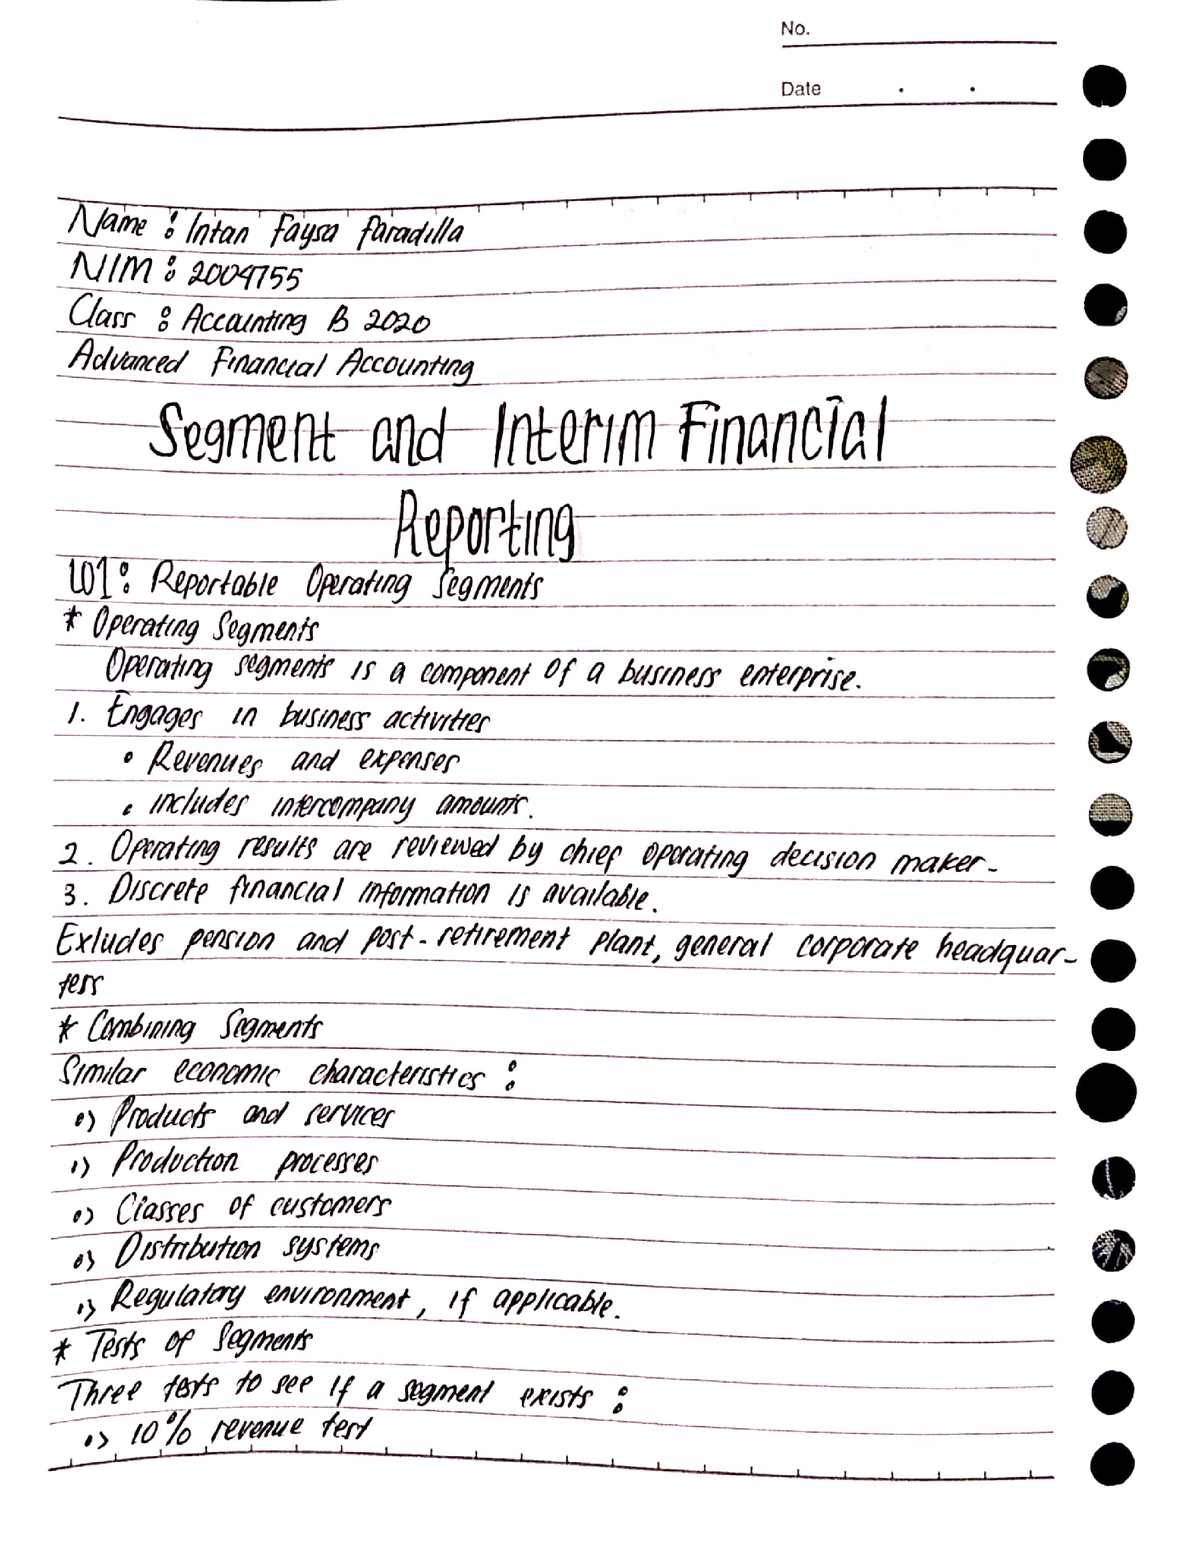 No.
Date . .
Name : Intan Faysa Faradilla
NIM : 2004755
Class : Accounting B 2020
Advanced Financial Accounting
Segment and Interim Financial
Reporting
LO1 : Reportable Operating Segments
* Operating Segments
Operating segments is a component of a business enterprise.
1. Engages in business activities
• Revenues and expenses
• includes intercompany amounts.
2. Operating results are reviewed by chief operating decision maker.
3. Discrete financial information is available.
Exludes pension and post-retirement plant, general corporate headquar-
ters
* Combining Segments
Similar economic characteristics :
•> Products and services
•> Production processes
•> Classes of customers
•> Distribution systems
•> Regulatory environment, if applicable.
* Tests of Segments
Three tests to see if a segment exists :
•> 10% revenue test